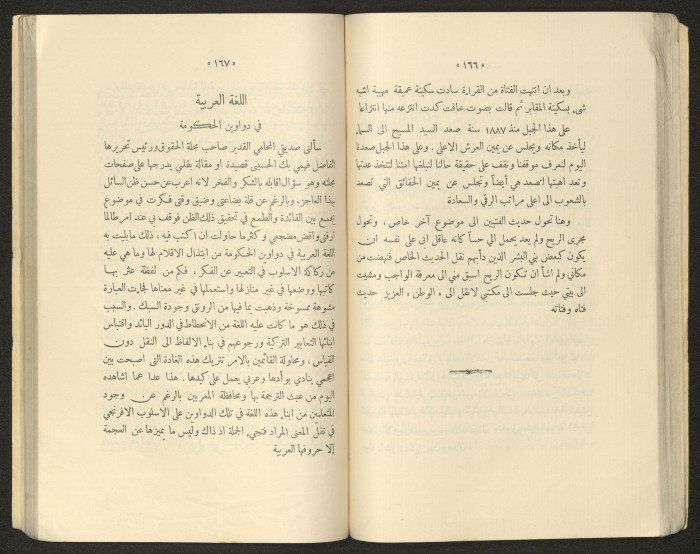 « ١٦٦ »
وبعد ان انتهت الفتاة من القراءة سادت سكينة عميقة مهيبة اشبه
شيء بسكينة المقابر ثم قالت بصوت خافت كدت انتزعه منها انتزاعا
على هذا الجبل منذ ١٨٨٧ سنة صعد السيد المسيح الى السماء
ليأخذ مكانه ويجلس عن يمين العرش الاعلى . وعلى هذا الجبل صعدنا
اليوم لنعرف موقفنا ونقف على حقيقة حالنا لنبلغها امتنا لتتخذ عدتها
وتعد اهبتها لتصعد هي أيضاً وتجلس عن يمين الحقائق التي تصعد
بالشعوب الى اعلى مراتب الرقي والسعادة
وهنا تحول حديث الفتيين الى موضوع آخر خاص ، وتحول
مجرى الريح ولم يعد يحمل الي حساً كانه عاقل ابى على نفسه ان
يكون كبعض بني البشر الذين دأبهم نقل الحديث الخاص فنهضت من
مكاني ولم اشأ ان تكون الريح اسبق مني الى معرفة الواجب ومشيت
الى بيتي حيث جلست الى مكتبي لانقل الى « الوطن » العزيز حديث
فتاه وفتاته
« ١٦٧ »
اللغة العربية
في دواوين الحكومة
سألني صديقي المحامي القدير صاحب مجلة الحقوق ورئيس تحريرها
الفاضل فهمي بك الحسيني قصيدة او مقالة بقلمي يدرجها على صفحات
مجلته وهو سؤال اقابله بالشكر والفخر لانه اعرب عن حسن ظن السائل
بهذا العاجز . وبالرغم عن قلة بضاعتي وضيق وقتي فكرت في موضوع
يجمع بين الفائدة والطمع في تحقيق ذلك الظن فوقف بي عند امر طالما
ارقني واقض مضجعي وكثر ما حاولت ان اكتب فيه . ذلك ما بليت به
اللغة العربية في دواوين الحكومة من ابتذال الاقلام لها وما هي عليه
من ركاكة الاسلوب في التعبير عن الفكر ، فكم من لفظة عثر بها
كاتبها ووضعها في غير منازلها واستعملها في غير معناها فجاءت العبارة
مشوهة ممسوخة وذهبت بما فيها من الرونق وجودة السبك . والسبب
في ذلك هو ما كانت عليه اللغة من الانحطاط في الدور البائد واقتباس
ابنائها التعابير التركية ورجوعهم في بناء الالفاظ الى النقل دون
القياس ، ومحاولة القائمين بالامر تتريك هذه الغادة التي اصبحت بين
اعجمي ينادي بوأدها وعربي يعمل على كيدها . هذا عدا عما اشاهده
اليوم من عبث الترجمة بها ومحافظة المعربين بالرغم عن وجود
المتعلمين من ابناء هذه اللغة في تلك الدواوين على الاسلوب الافرنجي
في نقل المعنى المراد فتجيء الجملة اذ ذاك وليس ما يميزها عن العجمة
إلا حروفها العربية